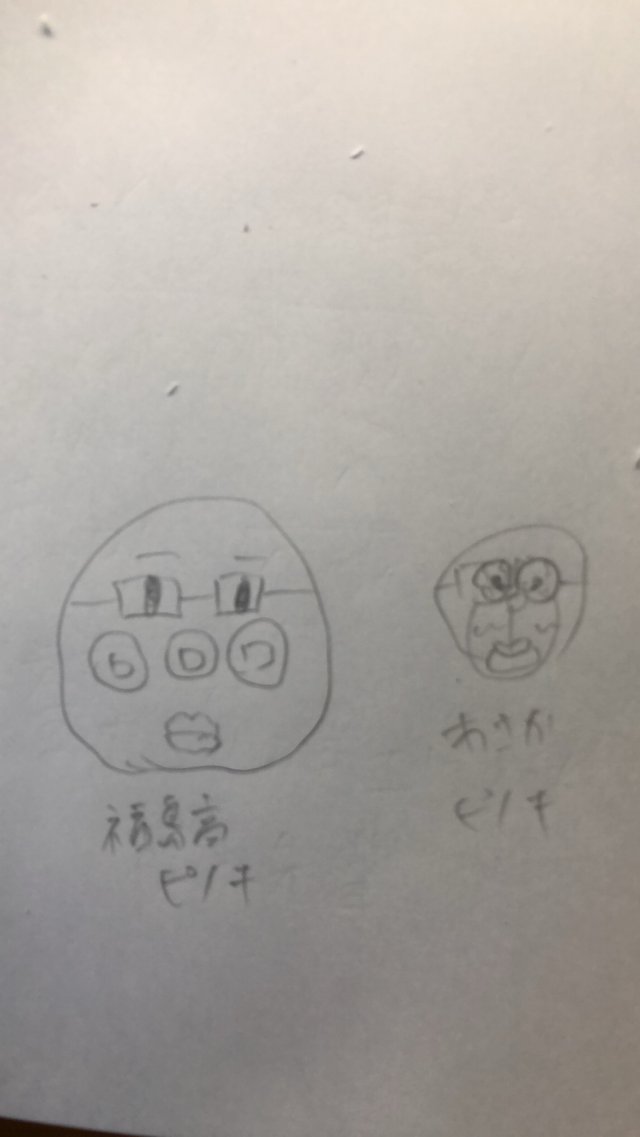 福島高
ピノキ
あさか
ピノキ